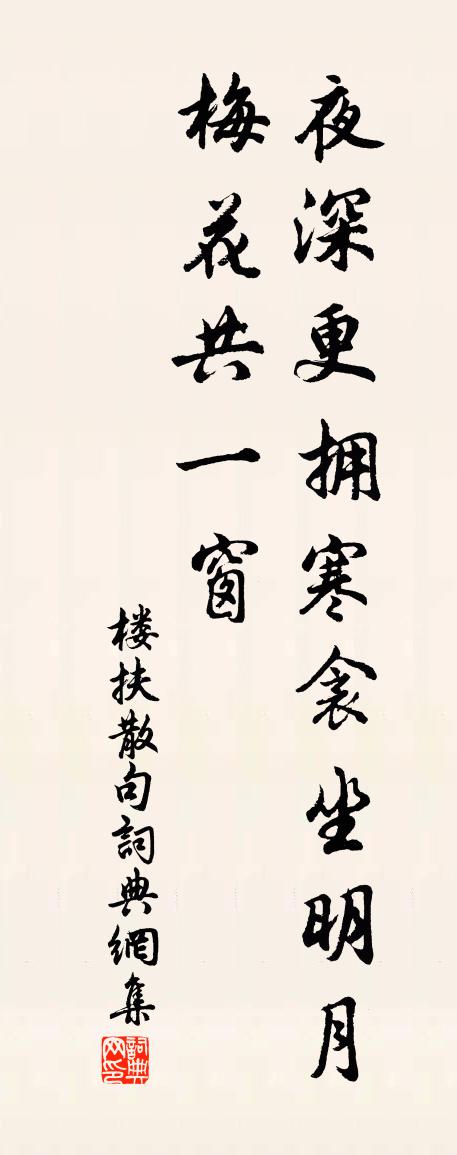 夜深更拥寒衾坐明月
梅花共一窗
楼扶散句詞典網集
詞典
网印